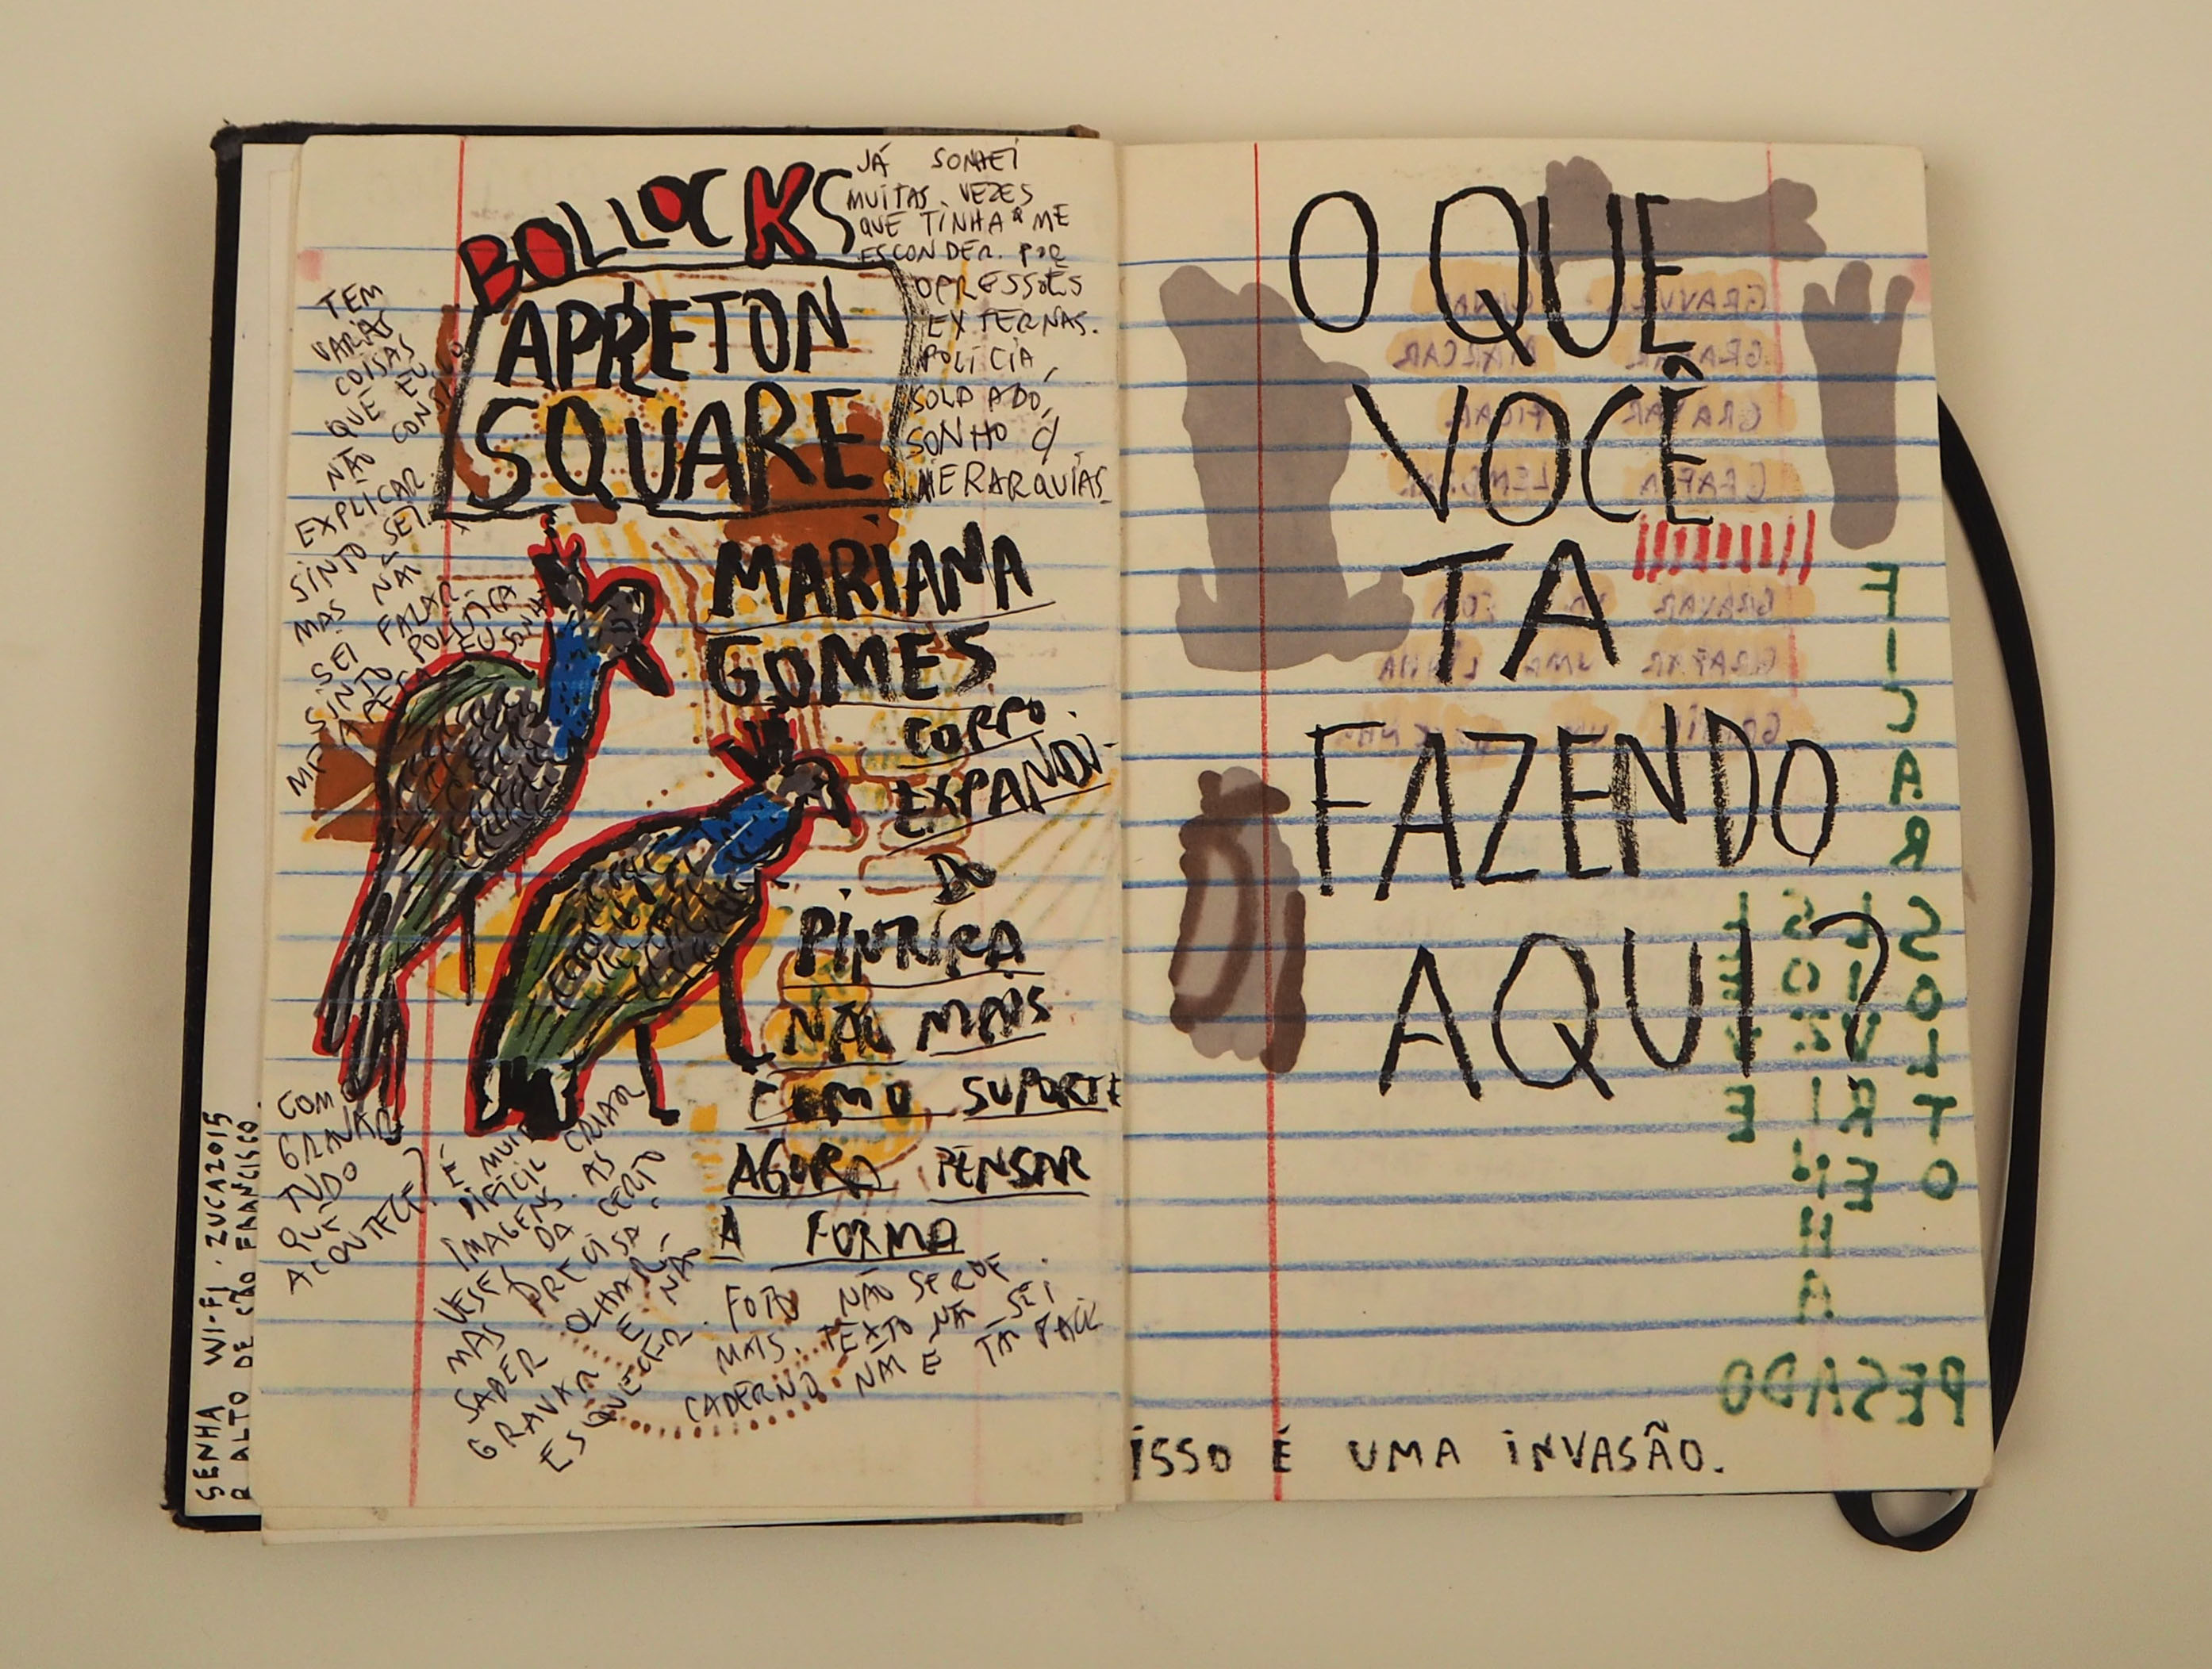 BOLLOCKS
APRETON
SQUARE
JÁ SONHEI
MUITAS VEZES
QUE TINHA Q ME
ESCONDER. POR
OPRESSÕES
EXTERNAS.
POLÍCIA,
SOLDADO,
SONHO C/
HIERARQUIAS
TEM
VARIAS
COISAS
QUE EU
NÃO CONSIGO
EXPLICAR
SINTO
MAS NÃO
SEI FALAR
SINTO POLÍTICA
MARIANA
GOMES
CORPO
EXPANDI-
DO
PINTURA
NÃO MAIS
COMO SUPORTE
AGORA PENSAR
A FORMA
COMO
GRAVAR
TUDO
QUANDO
ACONTECE?
É MUITO
DIFÍCIL CRIAR
IMAGENS. AS
VESES DA CERTO
MAS PRECISA
SABER OLHAR
GRAVAR E NÃO
ESQUECER.
FOTO NÃO SERVE
MAIS. TEXTO NÃO SEI
CADERNO NÃO É TÃO FACIL
SENHA WI-FI. ZUCA2015
R ALTO DE SÃO FRANCISCO.
O QUE
VOCÊ
TA
FAZENDO
AQUI?
GRAVURA
GRAVAR MARCAR
GRAVAR FICAR
GRAFIA
GRAVAR
GRAFAR UMA LINHA
FICAR SOLTO
LIVRE
SOZINHA
LEVE
PESADO
ISSO É UMA INVASÃO.